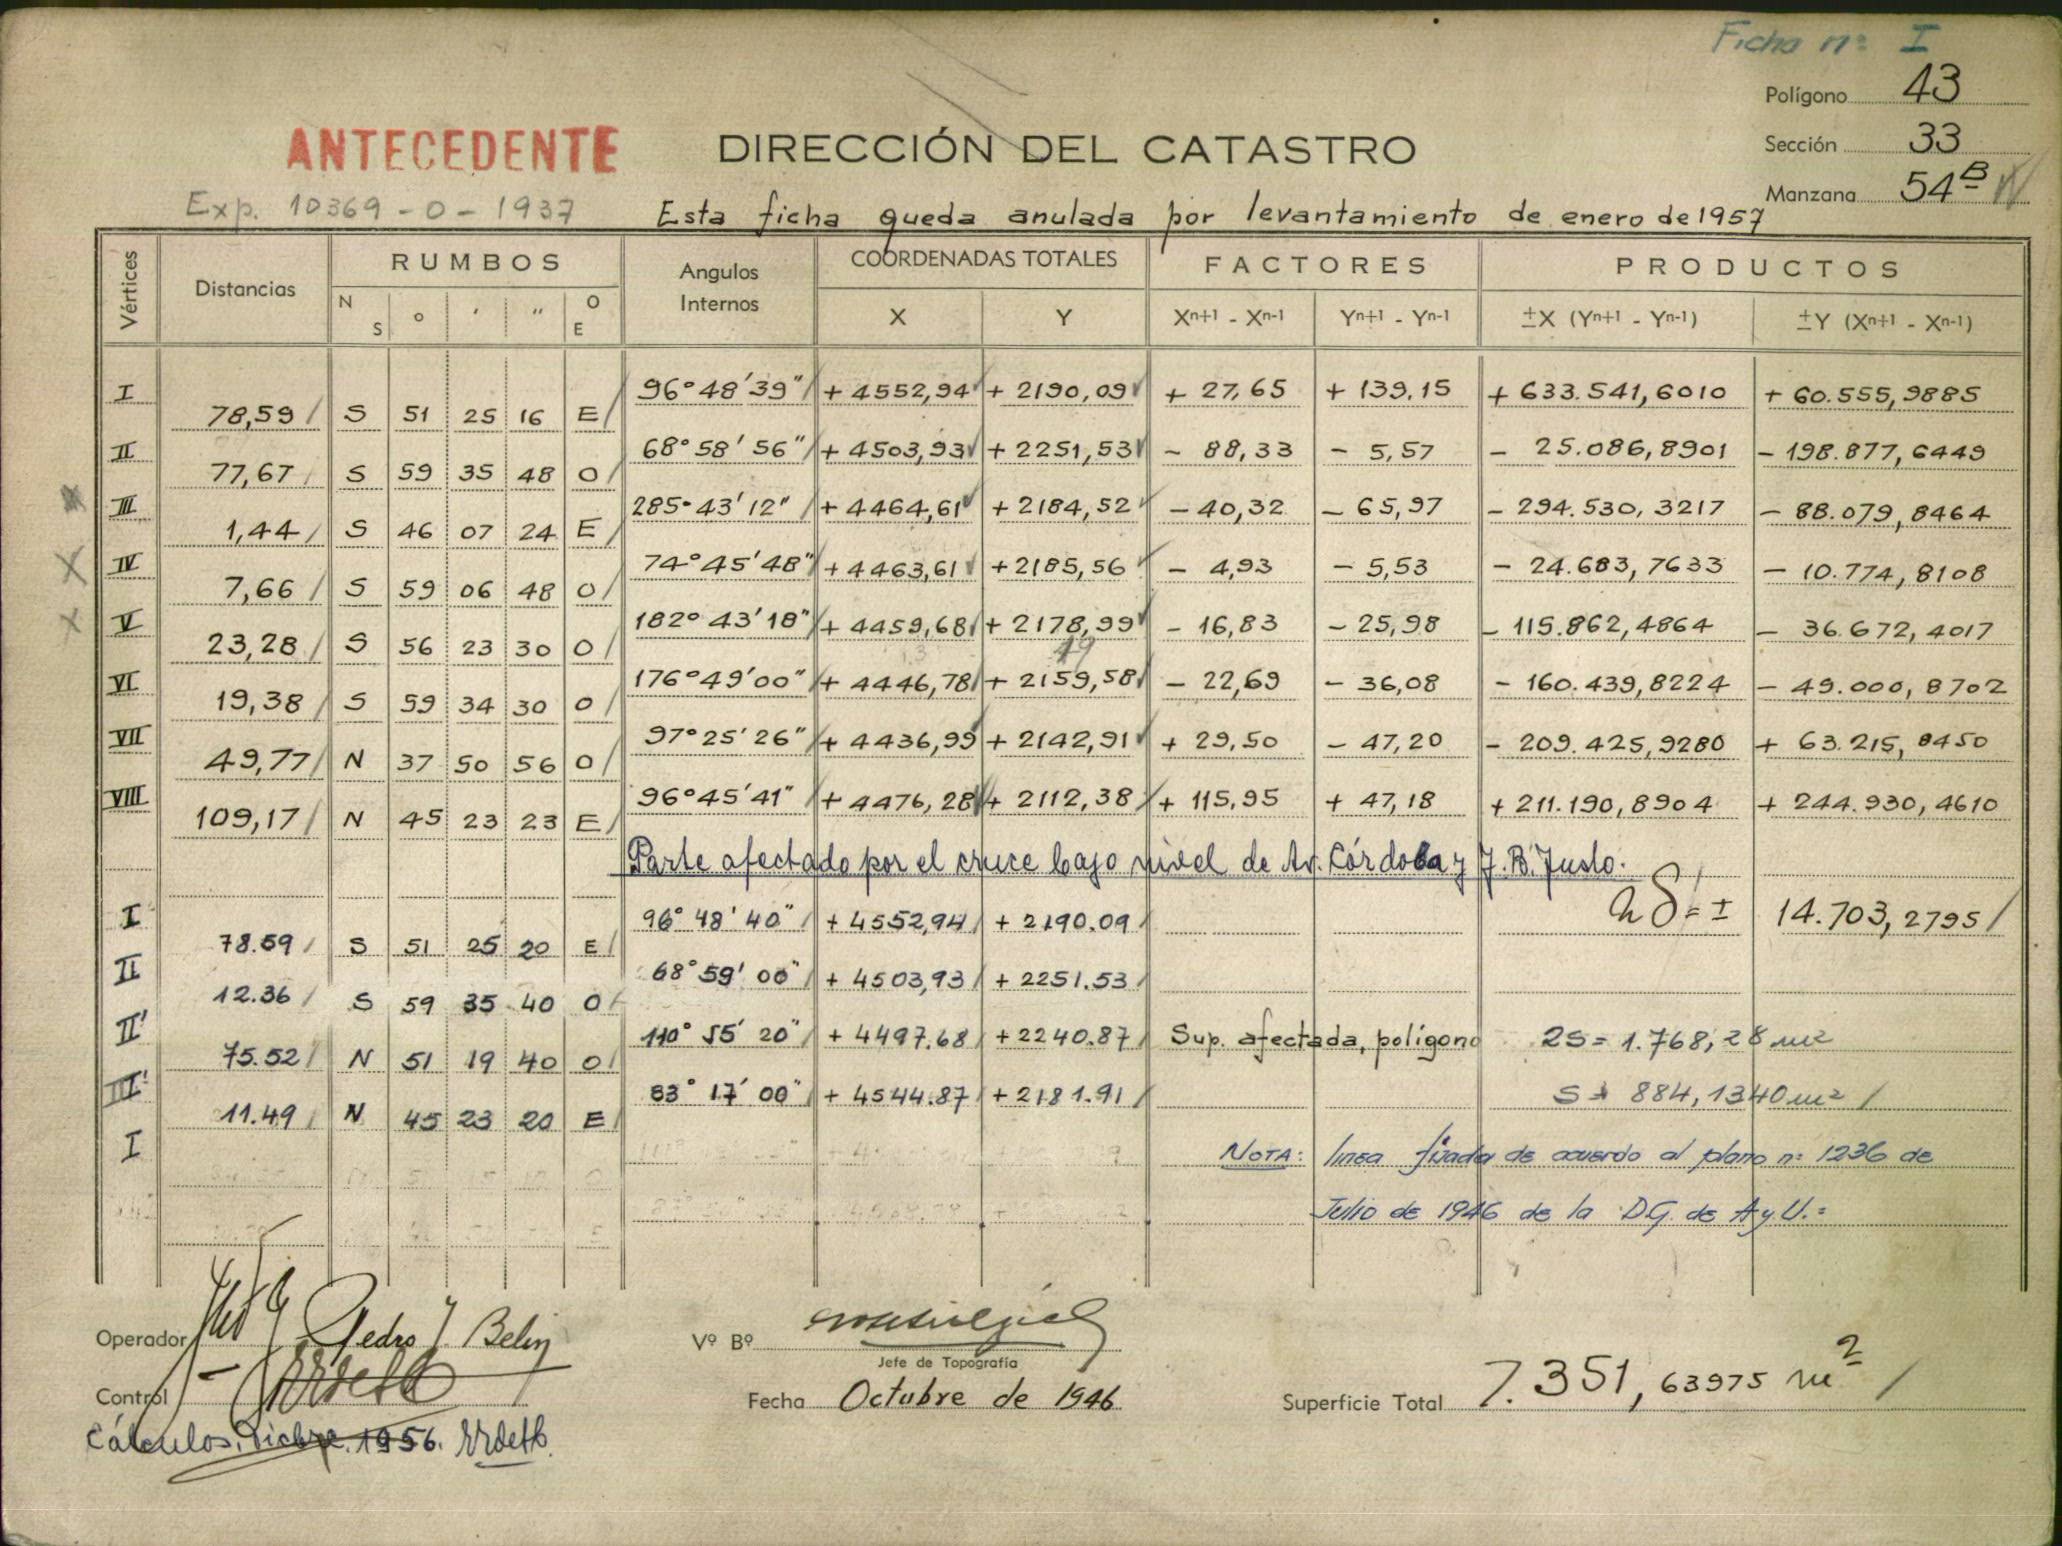 Ficha nº I
Polígono 43
ANTECEDENTE
DIRECCIÓN DEL CATASTRO
Sección 33
Manzana 54 B
Exp. 10369 - 0 - 1937
Esta ficha queda anulada por levantamiento de enero de 1957
Vértices Distancias RUMBOS Angulos Internos COORDENADAS TOTALES FACTORES PRODUCTOS
N S º ' " O E X Y Xn+1 - Xn-1 Yn+1 - Yn-1 ±X (Yn+1 - Yn-1) ±Y (Xn+1 - Xn-1)
I 96° 48' 39" + 4552,94 + 2190,09 + 27,65 + 139,15 + 633.541,6010 + 60.555,9885
78,59 S 51 25 16 E
II 68° 58' 56" + 4503,93 + 2251,53 - 88,33 - 5,57 - 25.086,8901 - 198.877,6449
77,67 S 59 35 48 O
III 285° 43' 12" + 4464,61 + 2184,52 - 40,32 - 65,97 - 294.530,3217 - 88.079,8464
1,44 S 46 07 24 E
IV 74° 45' 48" + 4463,61 + 2185,56 - 4,93 - 5,53 - 24.683,7633 - 10.774,8108
7,66 S 59 06 48 O
V 182° 43' 18" + 4459,68 + 2178,99 - 16,83 - 25,98 - 115.862,4864 - 36.672,4017
23,28 S 56 23 30 O
19
VI 176° 49' 00" + 4446,78 + 2159,58 - 22,69 - 36,08 - 160.439,8224 - 49.000,8702
19,38 S 59 34 30 O
VII 97° 25' 26" + 4436,99 + 2142,91 + 29,50 - 47,20 - 209.425,9280 + 63.215,8450
49,77 N 37 50 56 O
VIII 96° 45' 41" + 4476,28 + 2112,38 + 115,95 + 47,18 + 211.190,8904 + 244.930,4610
109,17 N 45 23 23 E
Parte afectado por el cruce bajo nivel de Av. Córdoba y J. B. Justo.
I 96° 48' 40" + 4552,94 + 2190.09 2S = ± 14.703,2795
78.59 S 51 25 20 E
II 68° 59' 00" + 4503,93 + 2251.53
12.36 S 59 35 40 O
II' 110° 55' 20" + 4497.68 + 2240.87 Sup. afectada, polígono 2S = 1.768,28 m²
75.52 N 51 19 40 O
III' 83° 17' 00" + 4544.87 + 2181.91 S = 884,1340 m²
11.49 N 45 23 20 E
I NOTA: linea fijada de acuerdo al plano nº 1236 de
Julio de 1946 de la D.G. de A y U.=
Operador Pedro J. Belin
Vº Bº
Jefe de Topografía
Control
Fecha Octubre de 1946
Superficie Total 7.351,63975 m²
Cálculos. Dicbre. 1956.